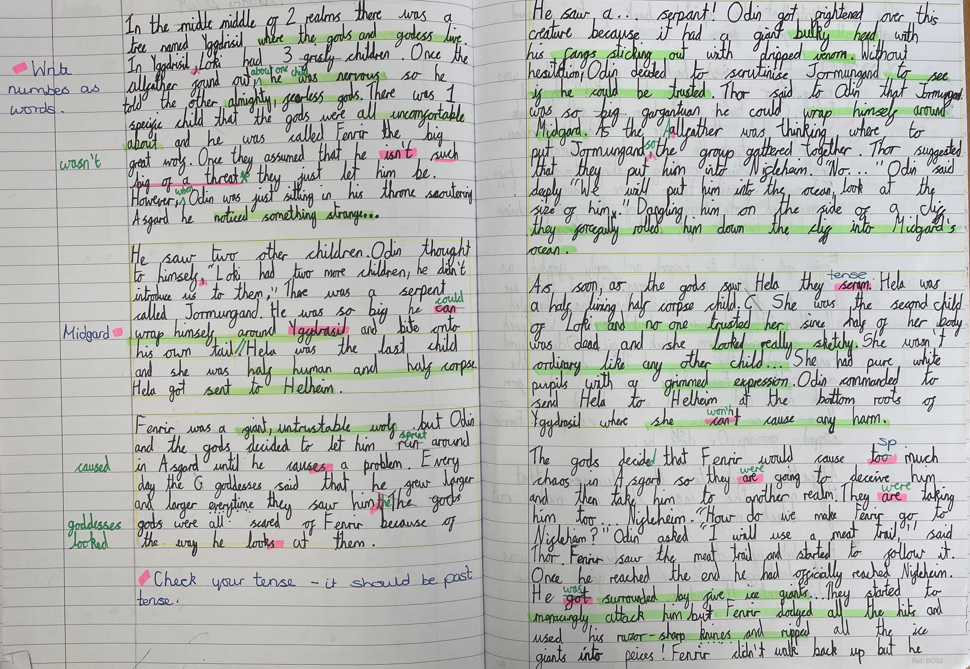 In the midle middle of 2 realms there was a
tree named Yggdrisil where the gods and godess live.
In Yggdrisil, Loki had 3 grisly children. Once the
about one child
allfather found out, he was nervous so he
told the other almighty, fearless gods. There was 1
specific child that the gods were all uncomfortable
about and he was called Fenrir the big
great wolf. Once they assumed that he isn't such
big of a threat they just let him be.
when
However, Odin was just sitting in his throne scrutinising
Asgard he noticed something strange...
Write
numbers as
words.
wasn't
He saw two other children. Odin thought
to himself, "Loki had two more children, he didn't
introduce us to them," There was a serpent
could
called Jormungand. He was so big he can
wrap himself around Yggdrasil and bite onto
his own tail// Hela was the last child
and she was half human and half corpse
Hela got sent to Helheim.
Midgard
Fenrir was a giant, untrustable wolf but Odin
sprint
and the gods decided to let him run around
in Asgard until he causes a problem. Every
day the G goddesses said that he grew larger
and larger everytime they saw him the The gods
gods were all scared of Fenrir because of
the way he looks at them.
caused
goddesses
looked
Check your tense - it should be past
tense.
He saw a... serpant! Odin got frightened over this
creature because it had a giant bulky head, with
his fangs sticking out with dripped venom. Without
hesitation, Odin decided to scrutinise Jormungand to see
if he could be trusted. Thor said to Odin that Jormungand
was so big gargantuan he could wrap himself around
Midgard. As the Allfather was thinking where to
so
put Jormungand, the group gathered together. Thor suggested
that they put him into Nifleheim. "No... " Odin said
deeply "We will put him into the ocean, look at the
size of him." Dangling him on the side of a cliff
they forcefully rolled him down the cliff into Midgard's
ocean.
tense
As soon, as the gods saw Hela they scream. Hela was
a half lining half corpse child. C She was the second child
of Loki and no one trusted her since half of her body
was dead and she looked really sketchy. She wasn't
ordinary like any other child... She had pure white
pupils with a grimmed expression. Odin commanded to
send Hela to Helheim at the bottom roots of
won't
Yggdrosil where she can't cause any harm.
sp
The gods decided that Fenrir would cause too much
were
chaos in Asgard so they are going to deceive him
were
and then take him to another realm. They are taking
him too... Nifleheim. "How do we make Fenrir go to
Nifleham?" Odin asked "I will use a meat trail," said
Thor. Fenrir saw the meat trail and started to follow it.
Once he reached the end he had offically reached Nifleheim.
was
He got surrounded by five ice giants... They started to
menacingly attack him but Fenrir dodged all the hits and
used his razor-sharp knines and ripped all the ice
giants into peices! Fenrir didn't walk back up but he